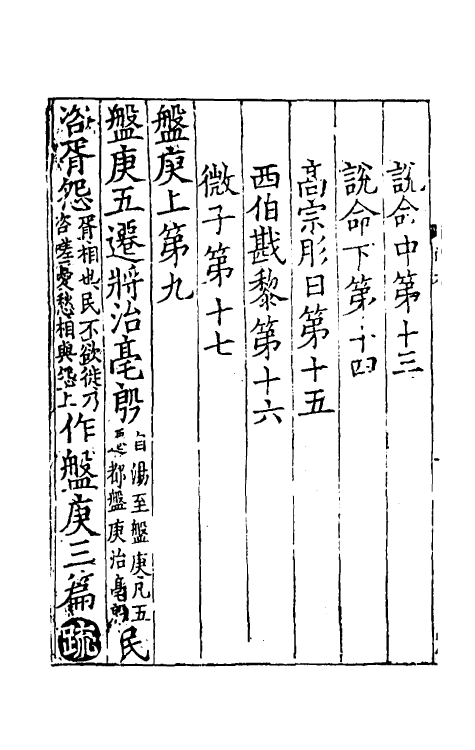 說命中第十三
說命下第十四
高宗肜日第十五
西伯戡黎第十六
微子第十七
盤庚上第九
盤庚五遷將治亳殷自湯至盤庚凡五遷都盤庚治亳殷民
咨胥怨胥相也民不欲徙乃咨嗟憂愁相與怨上作盤庚三篇疏